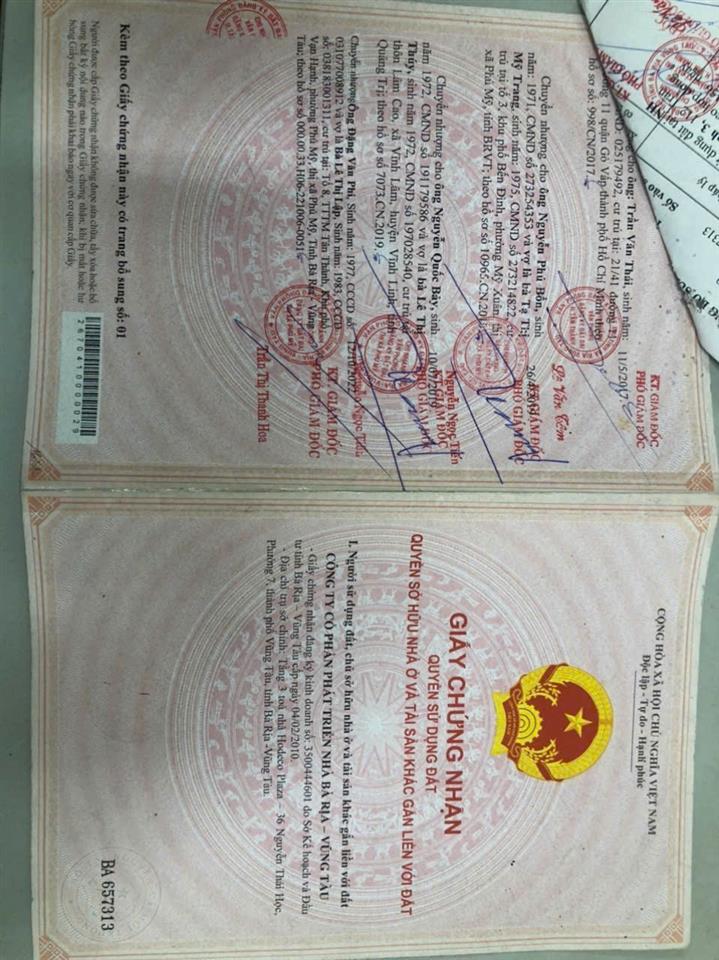 CỘNG HÒA XÃ HỘI CHỦ NGHĨA VIỆT NAM
Độc lập - Tự do - Hạnh phúc
GIẤY CHỨNG NHẬN
QUYỀN SỬ DỤNG ĐẤT
QUYỀN SỞ HỮU NHÀ Ở VÀ TÀI SẢN KHÁC GẮN LIỀN VỚI ĐẤT
I. Người sử dụng đất, chủ sở hữu nhà ở và tài sản khác gắn liền với đất
CÔNG TY CỔ PHẦN PHÁT TRIỂN NHÀ BÀ RỊA – VŨNG TÀU
- Giấy chứng nhận đăng ký kinh doanh số: 3500444601 do Sở Kế hoạch và Đầu
tư tỉnh Bà Rịa – Vũng Tàu cấp ngày 04/02/2010.
- Địa chỉ trụ sở chính: Tầng 3 toà nhà Hodeco Plaza – 36 Nguyễn Thái Học,
Phường 7, thành phố Vũng Tàu, tỉnh Bà Rịa -Vũng Tàu.
BA 657313
cho ông: Trần Văn Thái, sinh năm:
025179492, cư trú tại: 21/41 đường
11 quận Gò Vấp thành phố Hồ Chí Minh theo
hồ sơ số: 998/CN/2017.
11/5/2017
KT GIÁM ĐỐC
PHÓ GIÁM ĐỐC
Chuyển nhượng cho ông Nguyễn Phú Bốn, sinh
năm: 1971, CMND số 273254353 và vợ là bà Tạ Thị
Mỹ Trang, sinh năm: 1975, CMND số 273214822, cư
trú tại tổ 3, khu phố Bến Đình, phường Mỹ Xuân, thị
xã Phú Mỹ, tỉnh BRVT; theo hồ sơ số 10965.CN.
KT GIÁM ĐỐC
PHÓ GIÁM ĐỐC
Chuyển nhượng cho ông Nguyễn Quốc Bảy, sinh
năm 1972, CMND số 191179586 và vợ là bà Lê Thị
Thúy, sinh năm 1972, CMND số 197028540, cư trú tại
thôn Lâm Cao, xã Vĩnh Lâm, huyện Vĩnh Linh, tỉnh
Quảng Trị; theo hồ sơ số 7073.CN.2019.
KT GIÁM ĐỐC
PHÓ GIÁM ĐỐC
Nguyễn Ngọc Tiến
Chuyển nhượng Ông Đặng Văn Phi, Sinh năm: 1977, CCCD số:
031077008912 và vợ là bà Lê Thị Lập, Sinh năm: 1983, CCCD
số: 038183001311, cư trú tại: Tổ 8, TTTM Tân Thành, Khu phố
Vạn Hạnh, phường Phú Mỹ, thị xã Phú Mỹ, Tỉnh Bà Rịa - Vũng
Tàu; theo hồ sơ số 000.00.33.H06-221006-0051
KT GIÁM ĐỐC
PHÓ GIÁM ĐỐC
Trần Thị Thanh Hoa
Kèm theo Giấy chứng nhận này có trang bổ sung số: 01
Người được cấp Giấy chứng nhận không được sửa chữa, tẩy xóa hoặc bổ
sung bất kỳ nội dung nào trong Giấy chứng nhận; khi bị mất hoặc hư
hỏng Giấy chứng nhận phải khai báo ngay với cơ quan cấp Giấy.
2670410000029